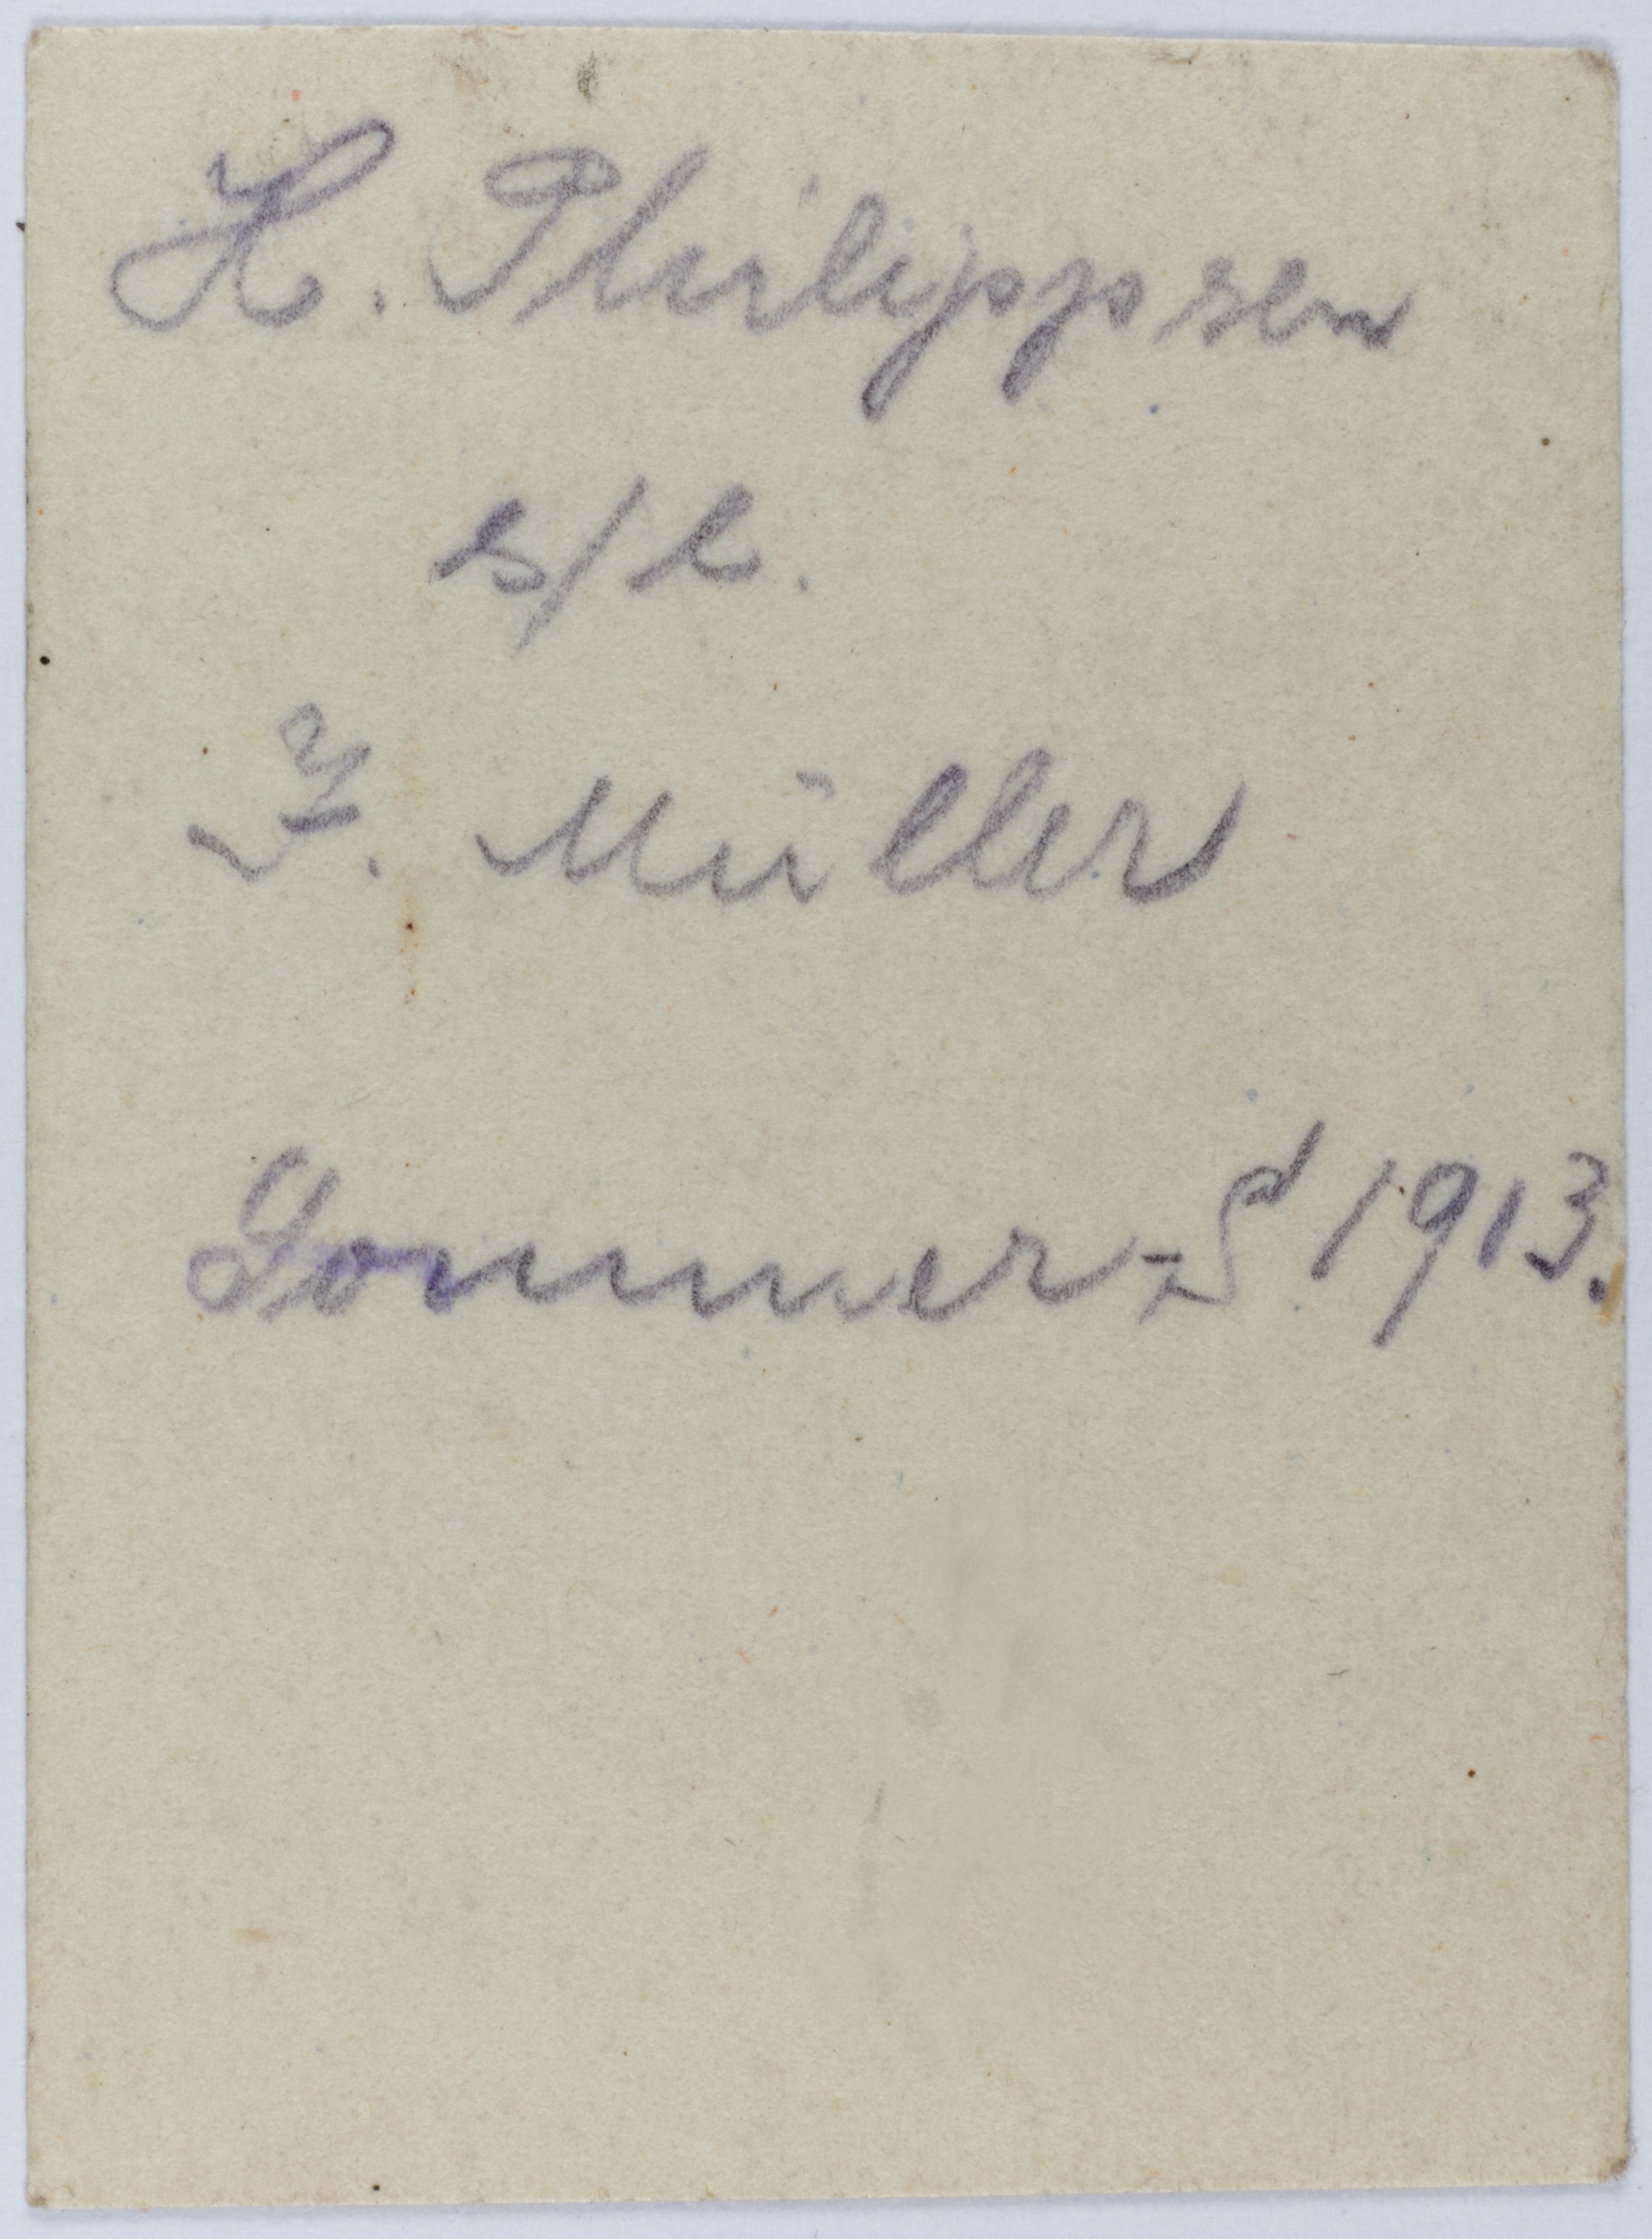 H. Philippsen
s/l.
F. Müller
Sommer-S 1913.